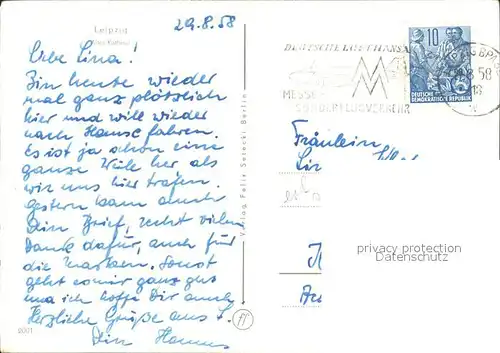 Leipzig
29.8.58
Liebe Lina!
Bin heute wieder
mal ganz plötzlich
hier und will wieder
nach Hause fahren.
Es ist ja schon eine
ganze Weile her als
wir uns hier trafen.
Gestern kam auch
Dein Brief, recht vielen
Dank dafür, auch für
die Marken. Sonst
geht es mir ganz gut
und ich hoffe Dir auch
Herzliche Grüße aus L.
Dein Hannes
2001
Verlag Felix Setecki Berlin
DEUTSCHE LUFTHANSA
MESSE
SONDERFLUGVERKEHR
10
DEUTSCHE
DEMOKRATISCHE REPUBLIK
58
18
Fräulein
privacy protection
Datenschutz